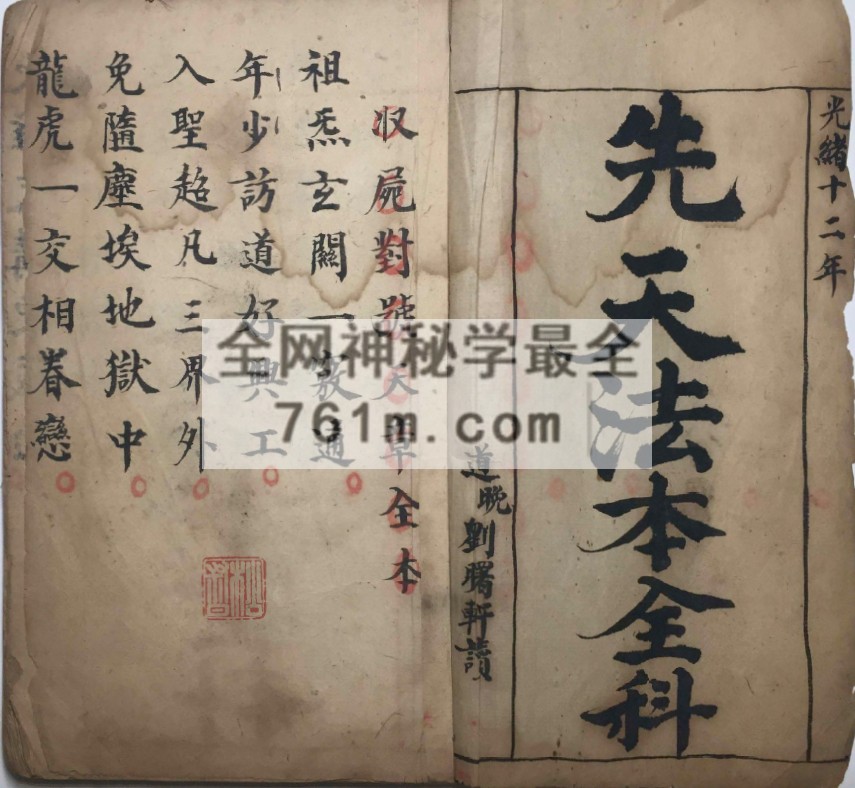 光緒十二年
先天法本全科
道晚劉曙軒讀
収屍對號天章全本
祖炁玄關一竅通
年少訪道好興工
入聖超凡三界外
免隨塵埃地獄中
龍虎一交相眷戀
全网神秘学最全
761m.com